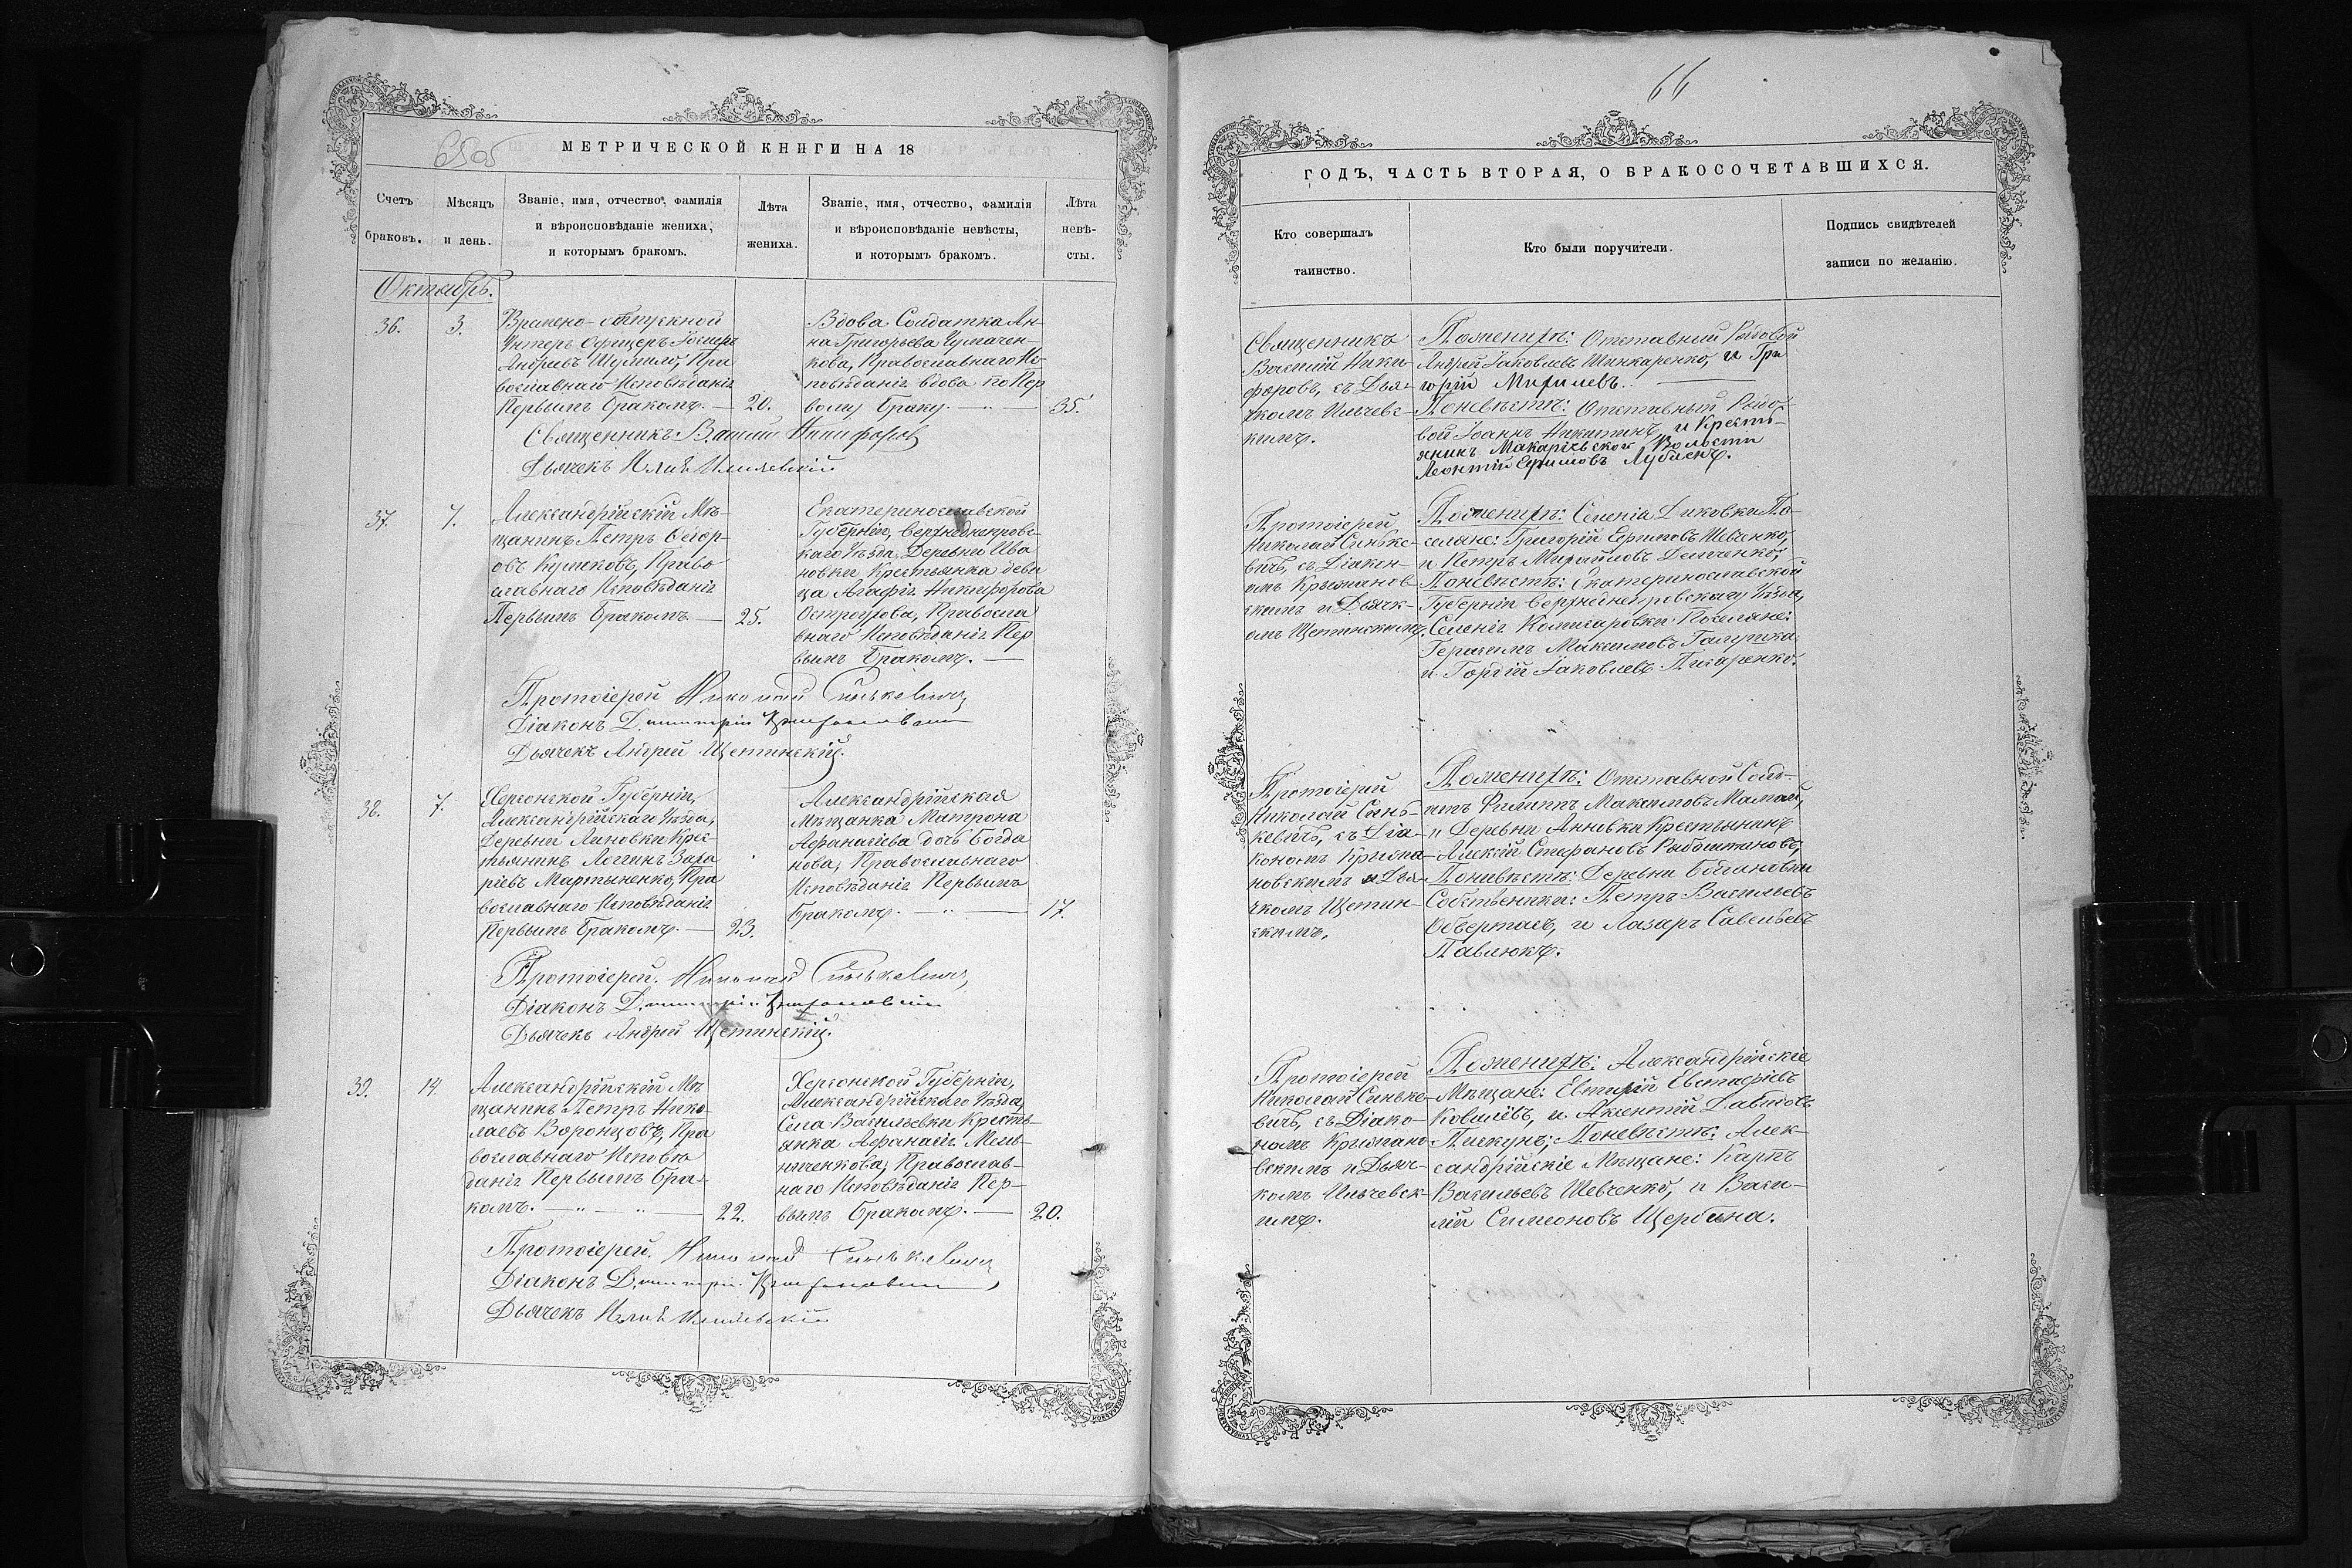 МЕТРИЧЕСКОЙ КНИГИ НА 18
Счетъ браковъ.
Мѣсяцъ и день.
Званіе, имя, отчество, фамилія
и вѣроисповѣданіе жениха,
и которымъ бракомъ.
Лѣта
жениха.
Званіе, имя, отчество, фамилія
и вѣроисповѣданіе невѣсты,
и которымъ бракомъ.
Лѣта
невѣ-
сты.
Октябрь.
36.
3.
Времено-отпускной
Унтеръ Офицеръ Іосифъ
Андреевъ Шумило, Пра
вославнаго Исповѣданія
Первымъ Бракомъ. —
20.
Вдова Солдатка Ан-
на Григорьева Чумачен-
кова, Православнаго Ис-
повѣданія вдова по Пер
вому Браку. — " —
35.
Священникъ Василій Никифоровъ
Дьячекъ Илія Ильчевскій
37.
7.
Александрійскій Мѣ-
щанинъ Петръ Ѳедор-
овъ Куликовъ, Право
славнаго Исповѣданія
Первымъ Бракомъ. —
25.
Екатеринославской
Губерніи, Верхнеднепровс-
каго Уѣзда, Деревни Ива
новки Крестьянка деви
ца Агафія Никифорова
Остроухова, Правосла
внаго Исповѣданія Пер
вымъ Бракомъ. —
Протоіерей Николай Синькевичъ
Діаконъ Димитрій Крыжановскій
Дьячекъ Андрей Щетинскій.
38.
7.
Херсонской Губерніи,
Александрійскаго Уѣзда,
Деревни Анновки Крес-
тьянинъ Логгинъ Заха
ріевъ Мартыненко, Пра
вославнаго Исповѣданія
Первымъ Бракомъ. —
23.
Александрійская
Мѣщанка Матрона
Афанасіева дочь Богда
нова, Православнаго
Исповѣданія Первымъ
Бракомъ. — " —
17.
Протоіерей Николай Синькевичъ
Діаконъ Димитрій Крыжановскій
Дьячекъ Андрей Щетинскій.
39.
14.
Александрійскій Мѣ
щанинъ Петръ Нико
лаевъ Воронцовъ, Пра
вославнаго Исповѣ
данія Первымъ Бра-
комъ. — " — " —
22.
Херсонской Губерніи,
Александрійскаго Уѣзда,
Села Васильевки Кресть-
янка Афанасія Мель-
ниченкова, Православ-
наго Исповѣданія Пер-
вымъ Бракомъ. —
20.
Протоіерей Николай Синькевичъ
Діаконъ Димитрій Крыжановскій
Дьячекъ Илія Ильчевскій
66
ГОДЪ, ЧАСТЬ ВТОРАЯ, О БРАКОСОЧЕТАВШИХСЯ.
Кто совершалъ
таинство.
Кто были поручители.
Подпись свидѣтелей
записи по желанію.
Священникъ
Василій Ники-
форовъ, съ Дья-
чкомъ Ильчевс-
кимъ.
По женихѣ: Отставный Рядовой
Андрей Іаковлевъ Шинкаренко, и Гри
горій Михилевъ. —
По невѣстѣ: Отставный Рядо-
вой Іоаннъ Никитинъ, и Кресть-
янинъ Макаріевской Волости
Леонтій Ефимовъ Лубенецъ.
Протоіерей
Николай Синьке-
вичъ, съ Діакон-
омъ Крыжанов-
скимъ и Дьячк-
омъ Щетинскимъ.
По женихѣ: Селенія Диковки По-
селяне: Григорій Ефимовъ Шевченко,
и Петръ Михайловъ Демченко;
По невѣстѣ: Екатеринославской
Губерніи Верхнеднепровскаго Уѣзда,
Селенія Комисаровки Поселяне:
Герасимъ Максимовъ Галушка,
и Гордій Іаковлевъ Писаренко.
Протоіерей
Николай Синь-
кевичъ, съ Діа-
кономъ Крыжа-
новскимъ и Дья-
чкомъ Щетин-
скимъ.
По женихѣ: Отставной Солд-
атъ Филиппъ Максимовъ Мамай,
и Деревни Анновки Крестьянинъ
Алексій Стефановъ Рыболтановъ;
По невѣстѣ: Деревни Богдановки
Собственники: Петръ Васильевъ
Обертасъ, и Лазарь Савельевъ
Павлюкъ.
Протоіерей
Николай Синьке-
вичъ, съ Діако-
номъ Крыжано-
вскимъ и Дьяч-
комъ Ильчевск-
имъ.
По женихѣ: Александрійскіе
Мѣщане: Евтихій Евстафіевъ
Ковалёвъ, и Аксентій Давидовъ
Пискунъ; По невѣстѣ: Алек-
сандрійскіе Мѣщане: Карпъ
Васильевъ Шевченко, и Васи-
лій Симеоновъ Щербина.